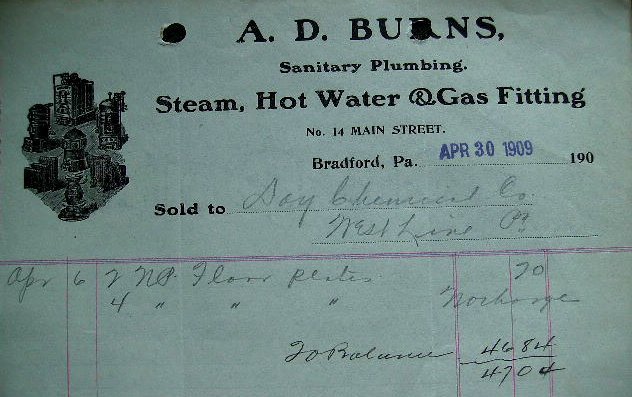 A. D. BURNS,
Sanitary Plumbing.
Steam, Hot Water & Gas Fitting
No. 14 MAIN STREET.
Bradford, Pa. APR 30 1909 190
Sold to Day Chemical Co
West Line Pa
Apr 6 2 N.P. Floor plates 20
4 " " " No charge
To Balance 46 84
47 04